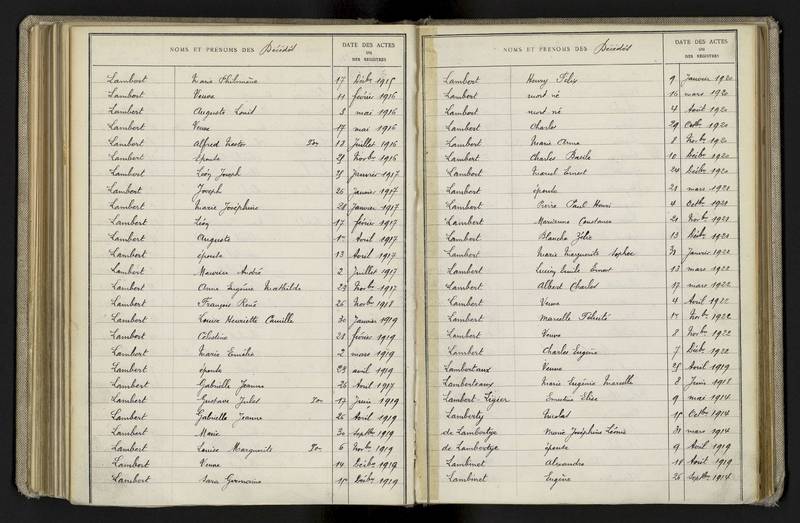 NOMS ET PRENOMS DES Décédés
DATE DES ACTES
OU
DES REGISTRES
Lambert Marie Philomène 17 Décbe 1915
Lambert Veuve 11 février 1916
Lambert Auguste Louis 3 mai 1916
Lambert Veuve 17 mai 1916
Lambert Alfred Nestor 13 Juillet 1916
Lambert épouse 25 Novbe 1916
Lambert Léon Joseph 25 Janvier 1917
Lambert Joseph 26 Janvier 1917
Lambert Marie Joséphine 28 Janvier 1917
Lambert Léon 17 février 1917
Lambert Auguste 1er Avril 1917
Lambert épouse 13 Avril 1917
Lambert Maurice André 2 Juillet 1917
Lambert Anne Eugénie Mathilde 23 Novbe 1917
Lambert François René 26 Novbe 1918
Lambert Louise Henriette Camille 30 Janvier 1919
Lambert Célestine 28 février 1919
Lambert Marie Emélie 2 mars 1919
Lambert épouse 23 avril 1919
Lambert Gabrielle Jeanne 26 Avril 1917
Lambert Gustave Jules 17 Juin 1919
Lambert Gabrielle Jeanne 26 Avril 1919
Lambert Marie 30 Septbe 1919
Lambert Louise Marguerite 6 Novbe 1919
Lambert Veuve 14 Décbe 1919
Lambert Sara Germaine 15 Décbe 1919
NOMS ET PRENOMS DES Décédés
DATE DES ACTES
OU
DES REGISTRES
Lambert Henry Félix 9 Janvier 1920
Lambert mort né 16 mars 1920
Lambert mort né 4 Août 1920
Lambert Charles 29 Octbe 1920
Lambert Marie Anna 8 Novbe 1920
Lambert Charles Basile 10 Décbe 1920
Lambert Marcel Ernest 24 Décbe 1920
Lambert épouse 21 mars 1921
Lambert Pierre Paul Henri 4 Octbe 1921
Lambert Marianne Constance 21 Novbe 1921
Lambert Blanche Zélie 13 Décbe 1921
Lambert Marie Marguerite Sophie 31 Janvier 1922
Lambert Lucien Emile Ernest 13 mars 1922
Lambert Albert Charles 17 mars 1922
Lambert Veuve 4 Avril 1922
Lambert Marcelle Félicité 1er Novbe 1922
Lambert Veuve 8 Novbe 1922
Lambert Charles Eugène 7 Décbe 1922
Lambertaux Veuve 25 Avril 1919
Lamberteaux Marie Eugénie Marcelle 2 Juin 1918
Lambert-Légier Ernestine Elise 9 mai 1914
Lamberty Nicolas 15 Octbe 1914
de Lambertye Marie Joséphine Léonie 31 mars 1914
de Lambertye épouse 9 Avril 1919
Lambinet Alexandre 18 Août 1919
Lambinet Eugène 26 Septbe 1914